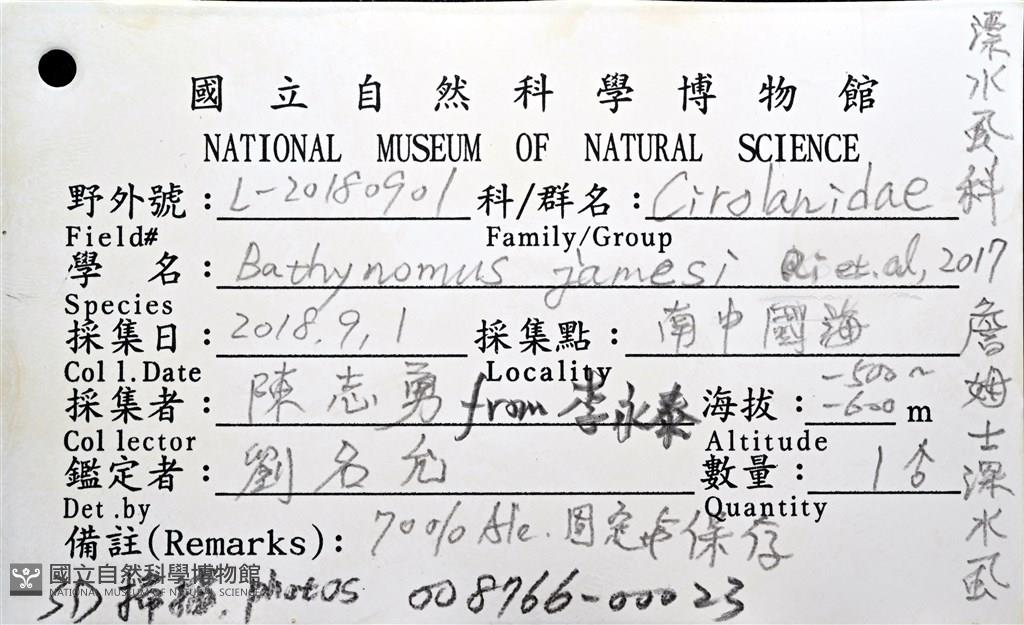 國立自然科學博物館
NATIONAL MUSEUM OF NATURAL SCIENCE
野外號：L-20180901 科/群名：Cirolanidae
Field# Family/Group
學 名：Bathynomus jamesi et. al, 2017
Species
採集日：2018.9.1 採集點：南中國海
Coll.Date Locality
採集者：陳志勇 from 李永泰 海拔：-500~-600 m
Collector Altitude
鑑定者：劉名允 數量：1
Det.by Quantity
備註(Remarks)：70% Ale. 固定 保存
3D 掃描, photos 008766-00023
國立自然科學博物館
NATIONAL MUSEUM OF NATURAL SCIENCE
漂水虱科
詹姆士深水虱